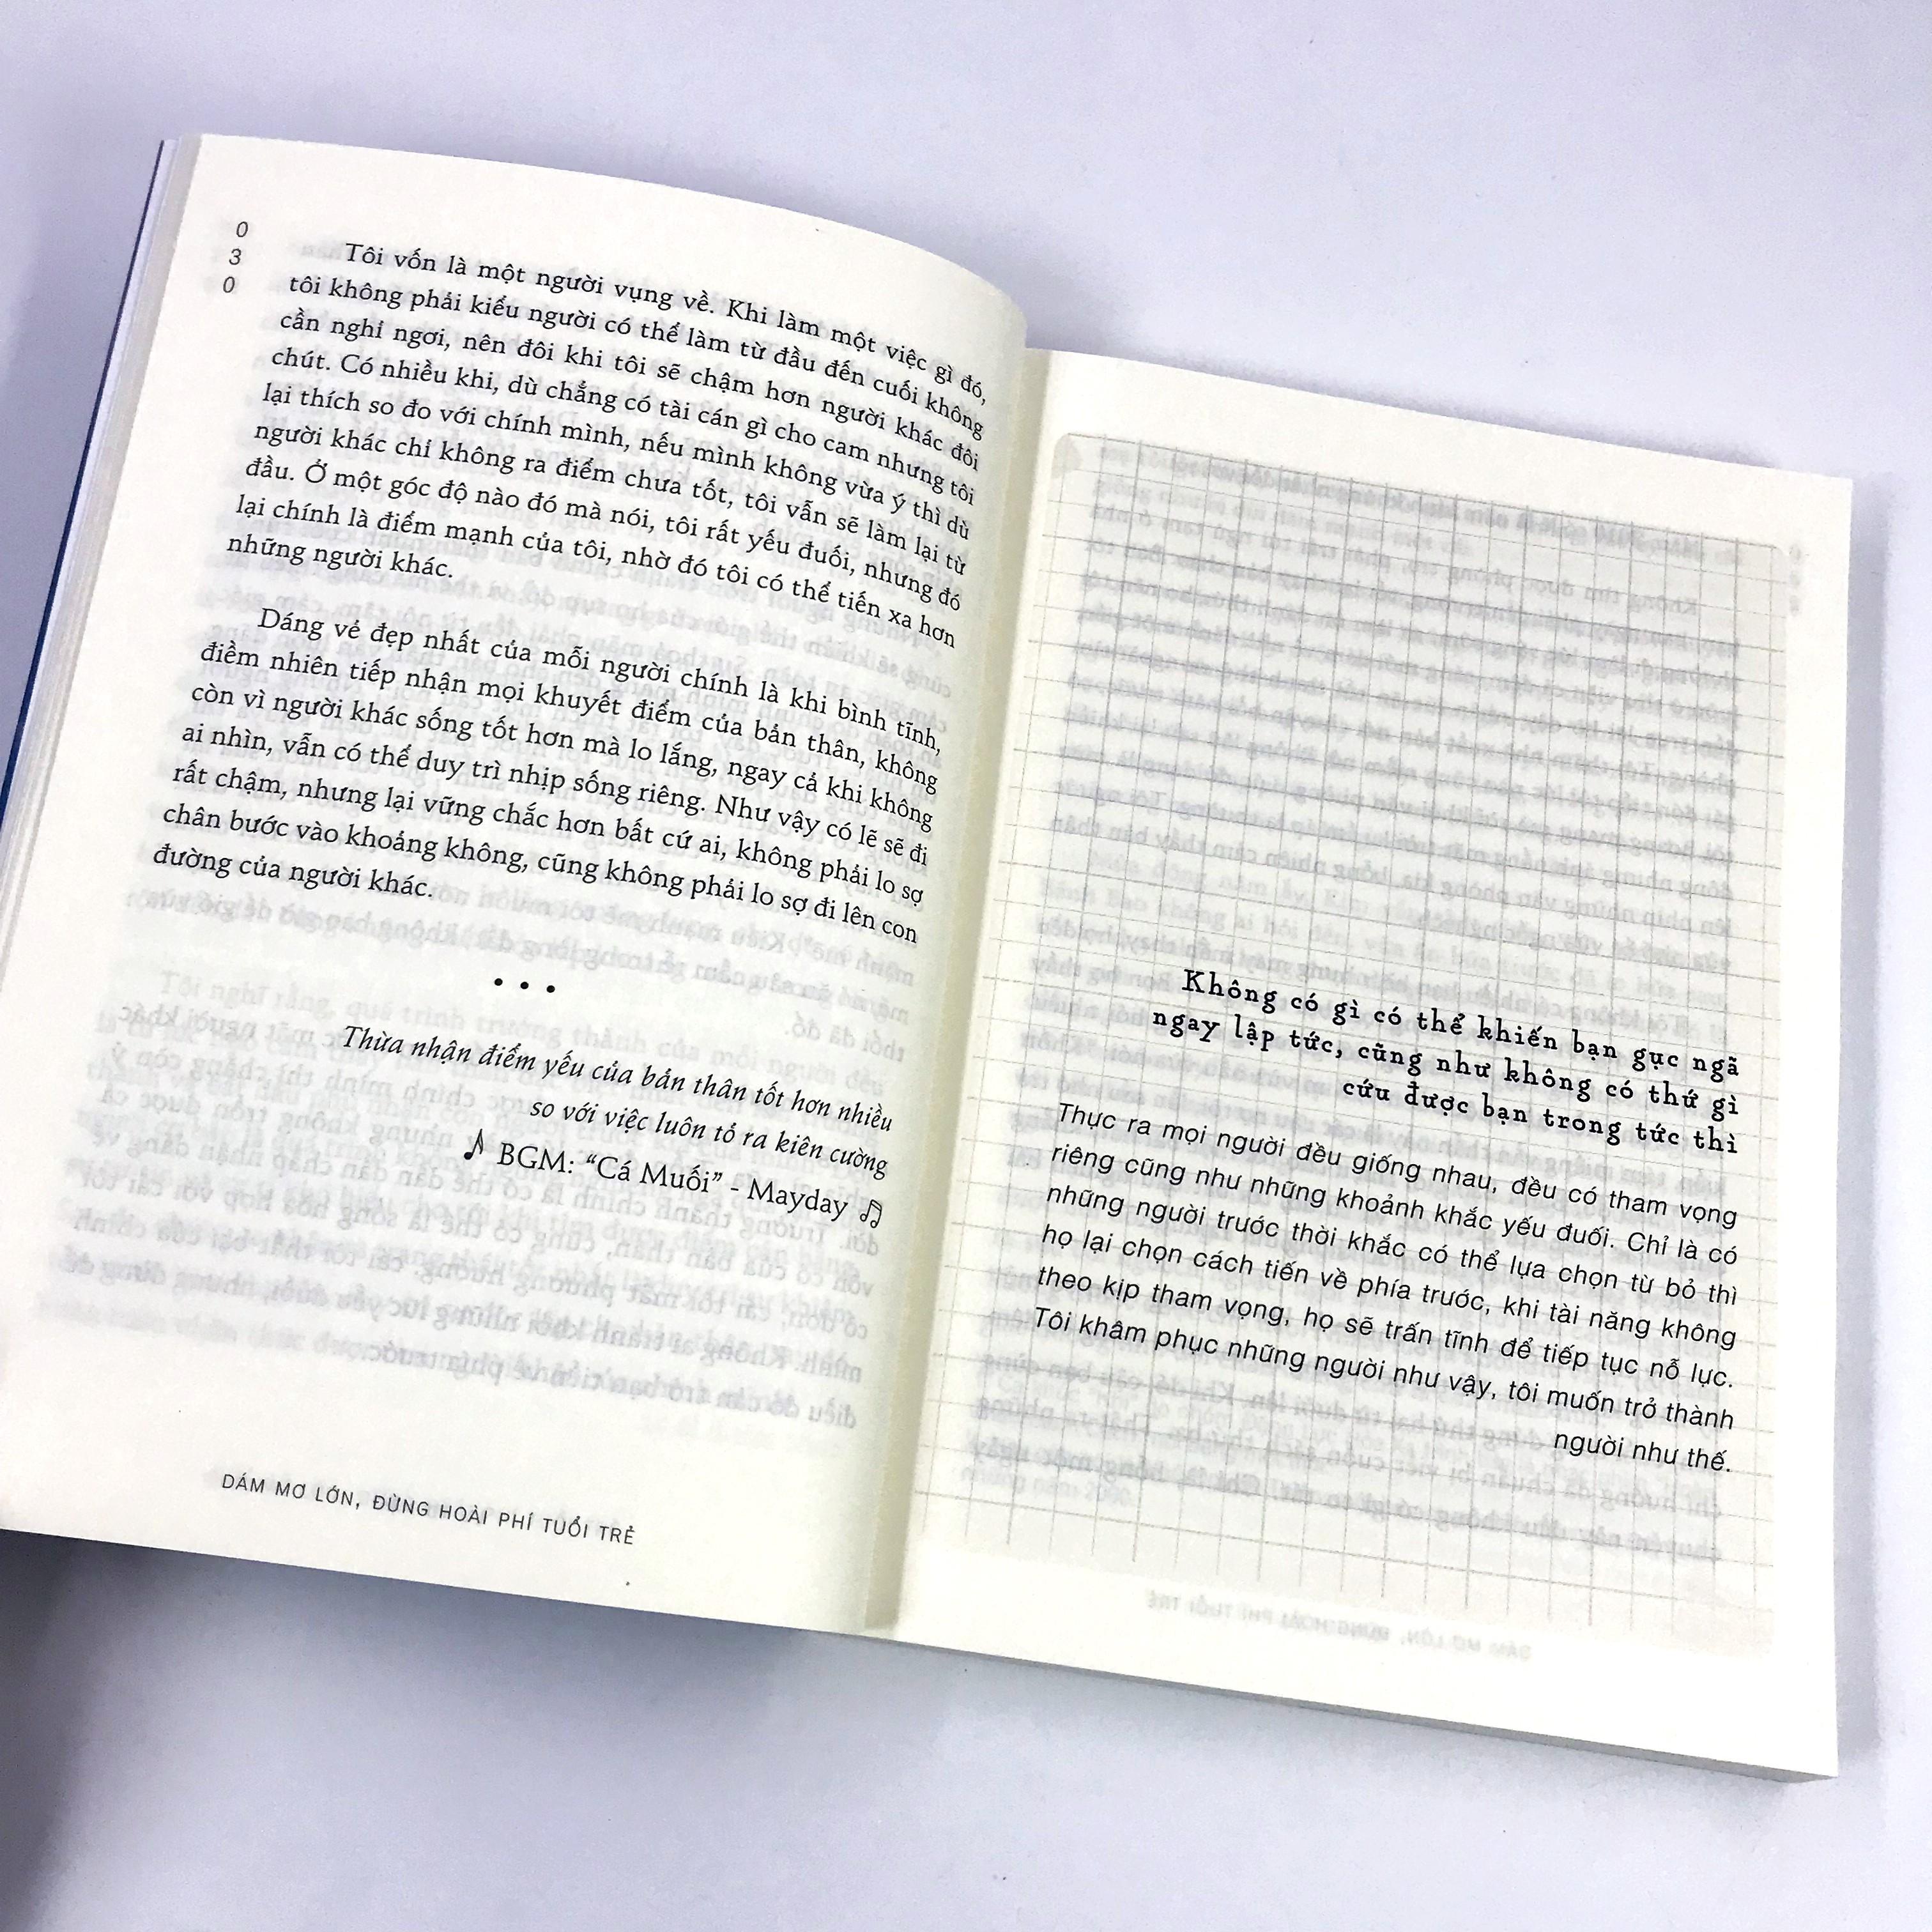 0
3
0
Tôi vốn là một người vụng về. Khi làm một việc gì đó,
tôi không phải kiểu người có thể làm từ đầu đến cuối không
cần nghỉ ngơi, nên đôi khi tôi sẽ chậm hơn người khác đôi
chút. Có nhiều khi, dù chẳng có tài cán gì cho cam nhưng tôi
lại thích so đo với chính mình, nếu mình không vừa ý thì dù
người khác chỉ không ra điểm chưa tốt, tôi vẫn sẽ làm lại từ
đầu. Ở một góc độ nào đó mà nói, tôi rất yếu đuối, nhưng đó
lại chính là điểm mạnh của tôi, nhờ đó tôi có thể tiến xa hơn
những người khác.
Dáng vẻ đẹp nhất của mỗi người chính là khi bình tĩnh,
điềm nhiên tiếp nhận mọi khuyết điểm của bản thân, không
còn vì người khác sống tốt hơn mà lo lắng, ngay cả khi không
ai nhìn, vẫn có thể duy trì nhịp sống riêng. Như vậy có lẽ sẽ đi
rất chậm, nhưng lại vững chắc hơn bất cứ ai, không phải lo sợ
chân bước vào khoảng không, cũng không phải lo sợ đi lên con
đường của người khác.
• • •
Thừa nhận điểm yếu của bản thân tốt hơn nhiều
so với việc luôn tỏ ra kiên cường
♪ BGM: “Cá Muối” - Mayday ♫
DÁM MƠ LỚN, ĐỪNG HOÀI PHÍ TUỔI TRẺ
Không có gì có thể khiến bạn gục ngã
ngay lập tức, cũng như không có thứ gì
cứu được bạn trong tức thì
Thực ra mọi người đều giống nhau, đều có tham vọng
riêng cũng như những khoảnh khắc yếu đuối. Chỉ là có
những người trước thời khắc có thể lựa chọn từ bỏ thì
họ lại chọn cách tiến về phía trước, khi tài năng không
theo kịp tham vọng, họ sẽ trấn tĩnh để tiếp tục nỗ lực.
Tôi khâm phục những người như vậy, tôi muốn trở thành
người như thế.